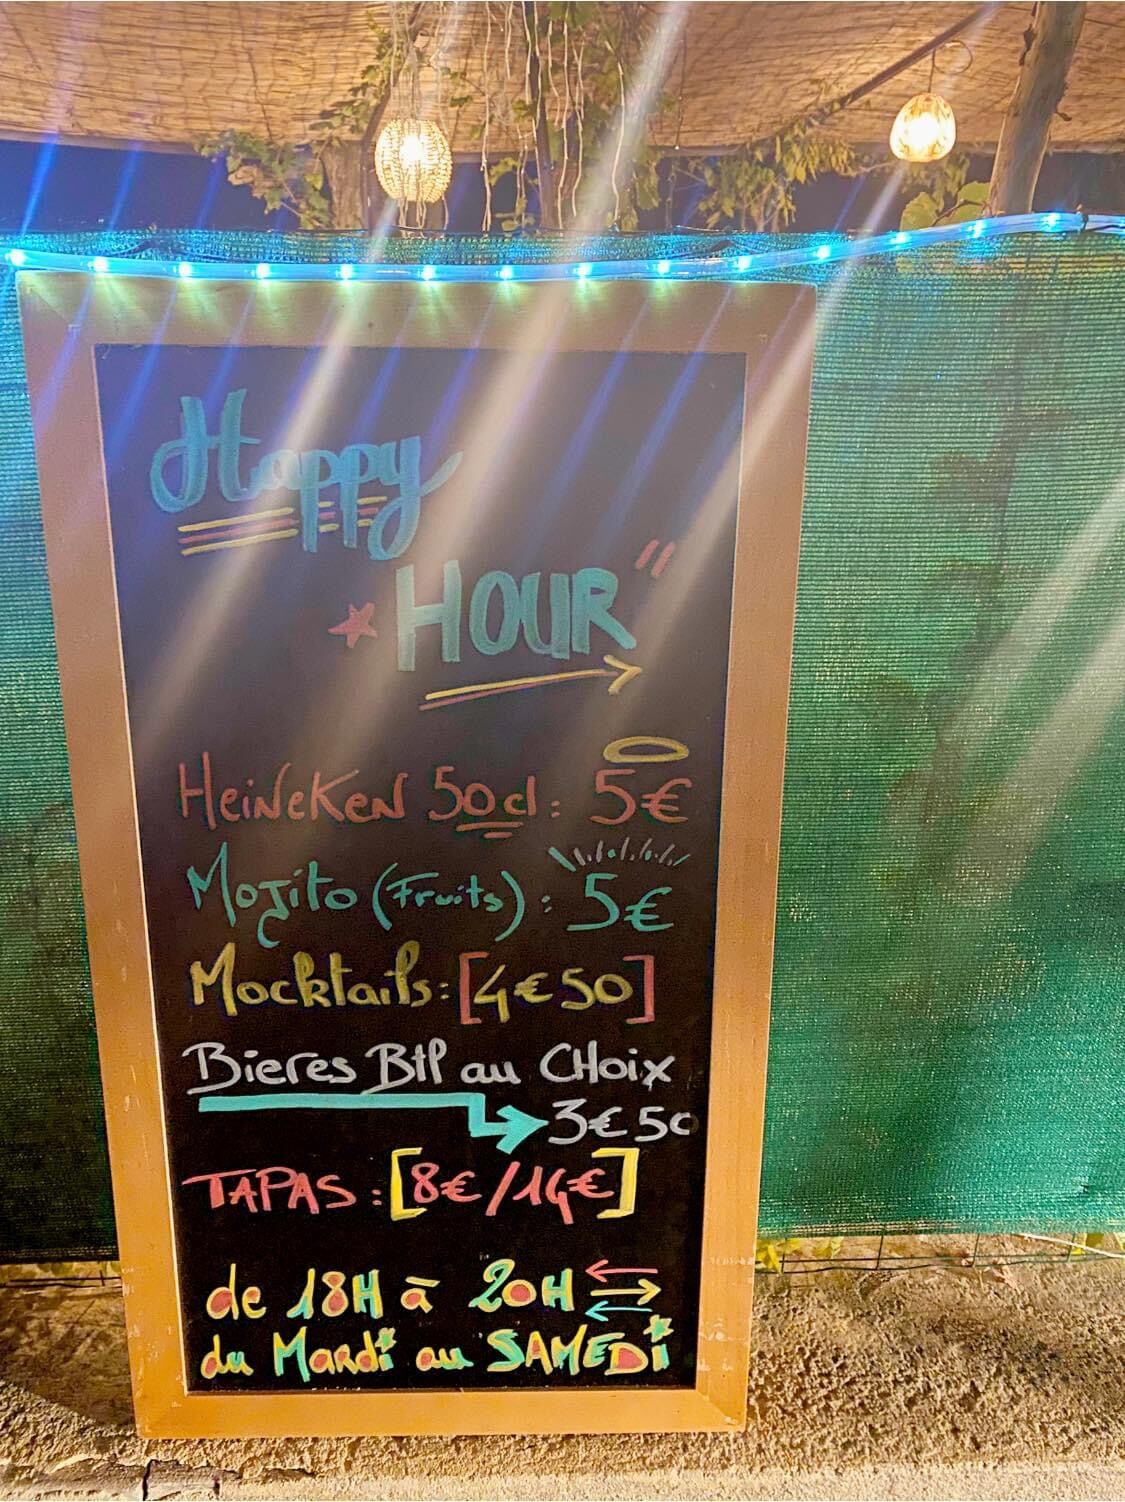 Happy
HOUR
Heineken 50cl : 5€
Mojito (Fruits) : 5€
Mocktails : [4€50]
Bieres Btl au CHoix
3€50
TAPAS : [8€/14€]
de 18H à 20H
du Mardi au SAMEDi